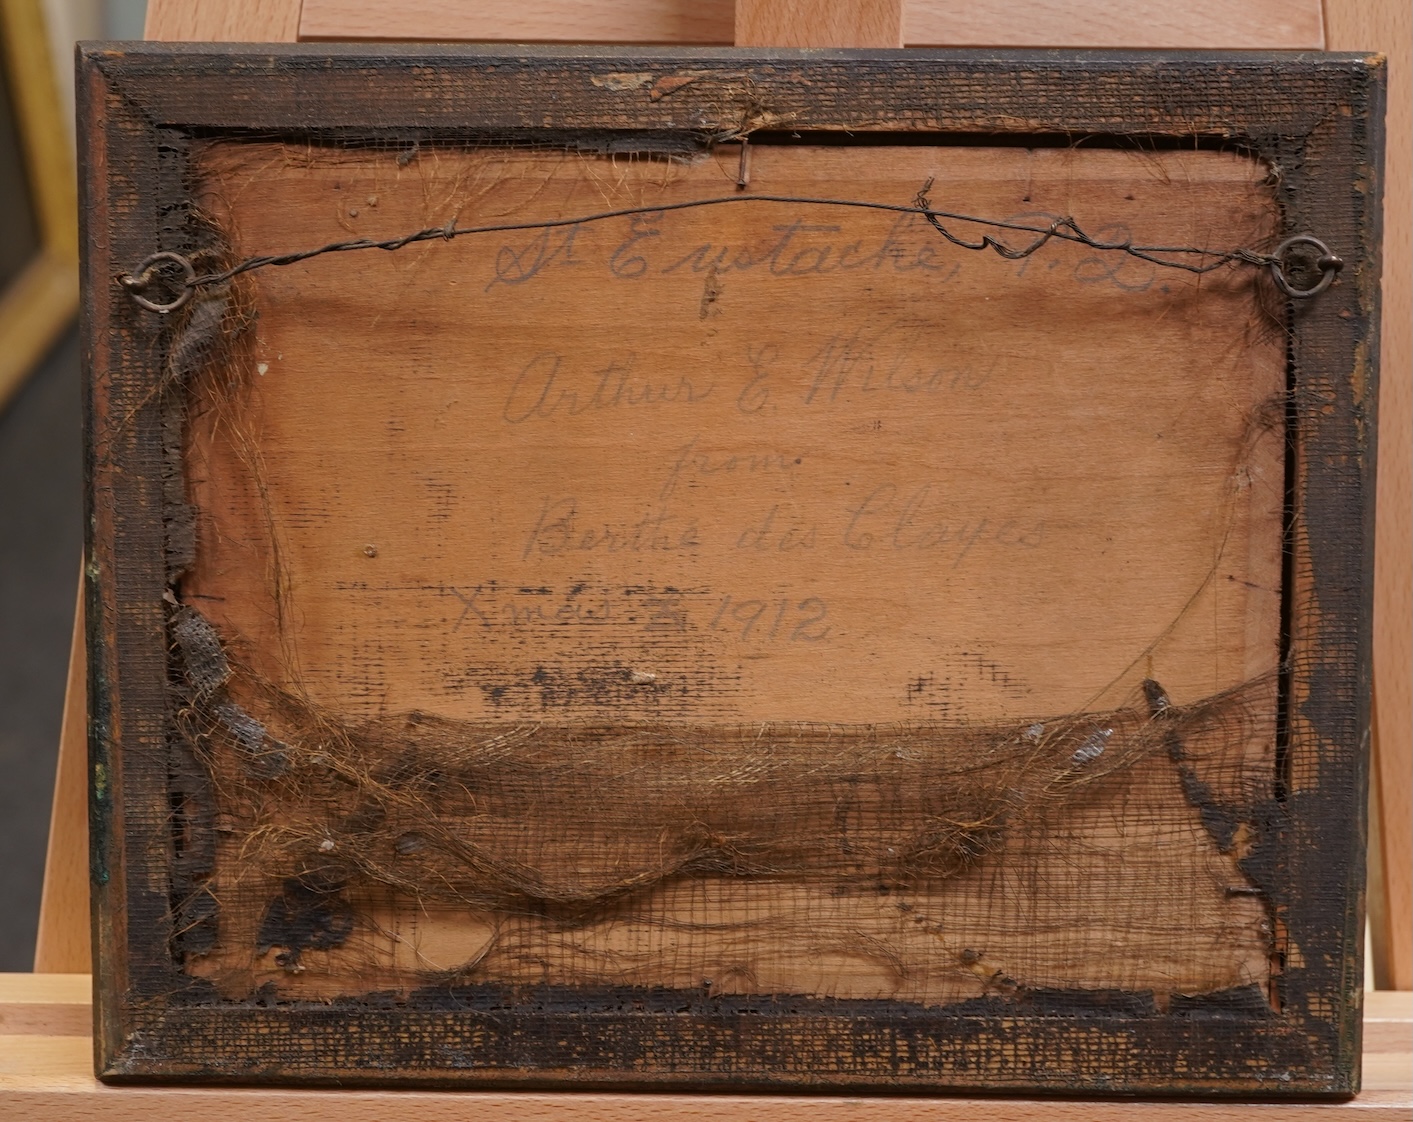 St. Eustache, P.Q.
Arthur E Wilson
from
Berthe des Clayes
Xmas 1912